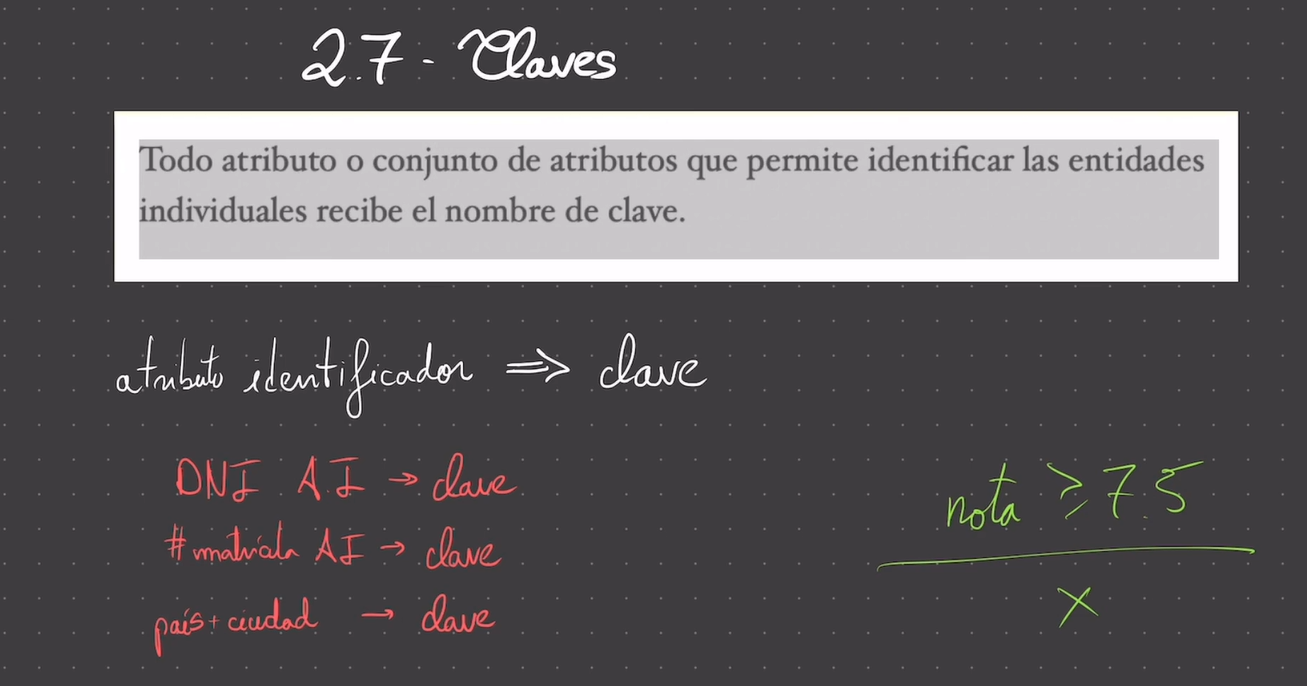 2.7 - Claves
Todo atributo o conjunto de atributos que permite identificar las entidades
individuales recibe el nombre de clave.
atributo identificador => clave
DNI AI → clave
#matrícula AI → clave
país + ciudad → clave
nota ≥ 7.5
x